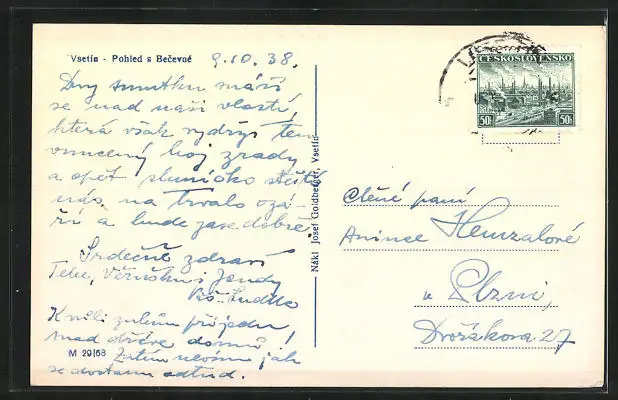 Vsetín - Pohled s Bečevné
9.10.38.
Dny smutku máší
se nad naší vlastí,
která však vydrží ten
vnucený boj zrady
a opět sluníčko štěstí
nás na trvalo ozá-
ří a bude zase dobře.
Srdečně zdraví
Tebe, Věrušku i Jendy
Váš Luděk
Kvůli zubům přijedu
snad dříve domů!
Zatím nevím jak
se dostanu odtud.
M 29|68
Nákl. Josef Goldberger, Vsetín
ČESKOSLOVENSKO
50h 50h
Ctěné paní
Anince Hemzalové
v Plzni,
Dvořákova 27